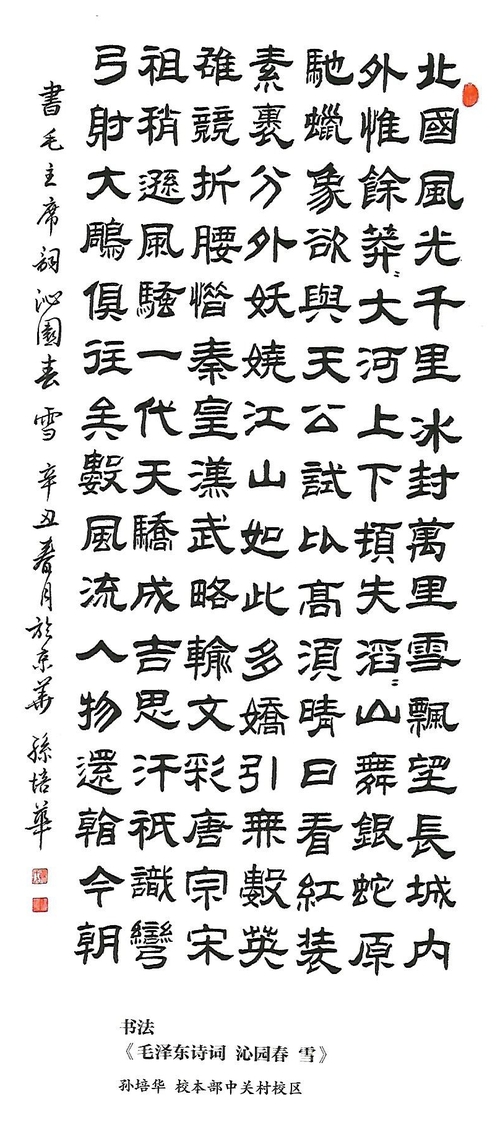 北國風光千里冰封萬里雪飄望長城内
外惟餘莽〻大河上下頓失滔〻山舞銀蛇原
馳蠟象欲與天公試比高須晴日看紅装
素裹分外妖嬈江山如此多嬌引無數英
雄競折腰惜秦皇漢武略輸文彩唐宗宋
祖稍遜風騷一代天驕成吉思汗祇識彎
弓射大鵰俱往矣數風流人物還看今朝
書毛主席詞沁園春雪 辛丑春月於京華 孫培華
书法
《毛泽东诗词 沁园春 雪》
孙培华 校本部中关村校区